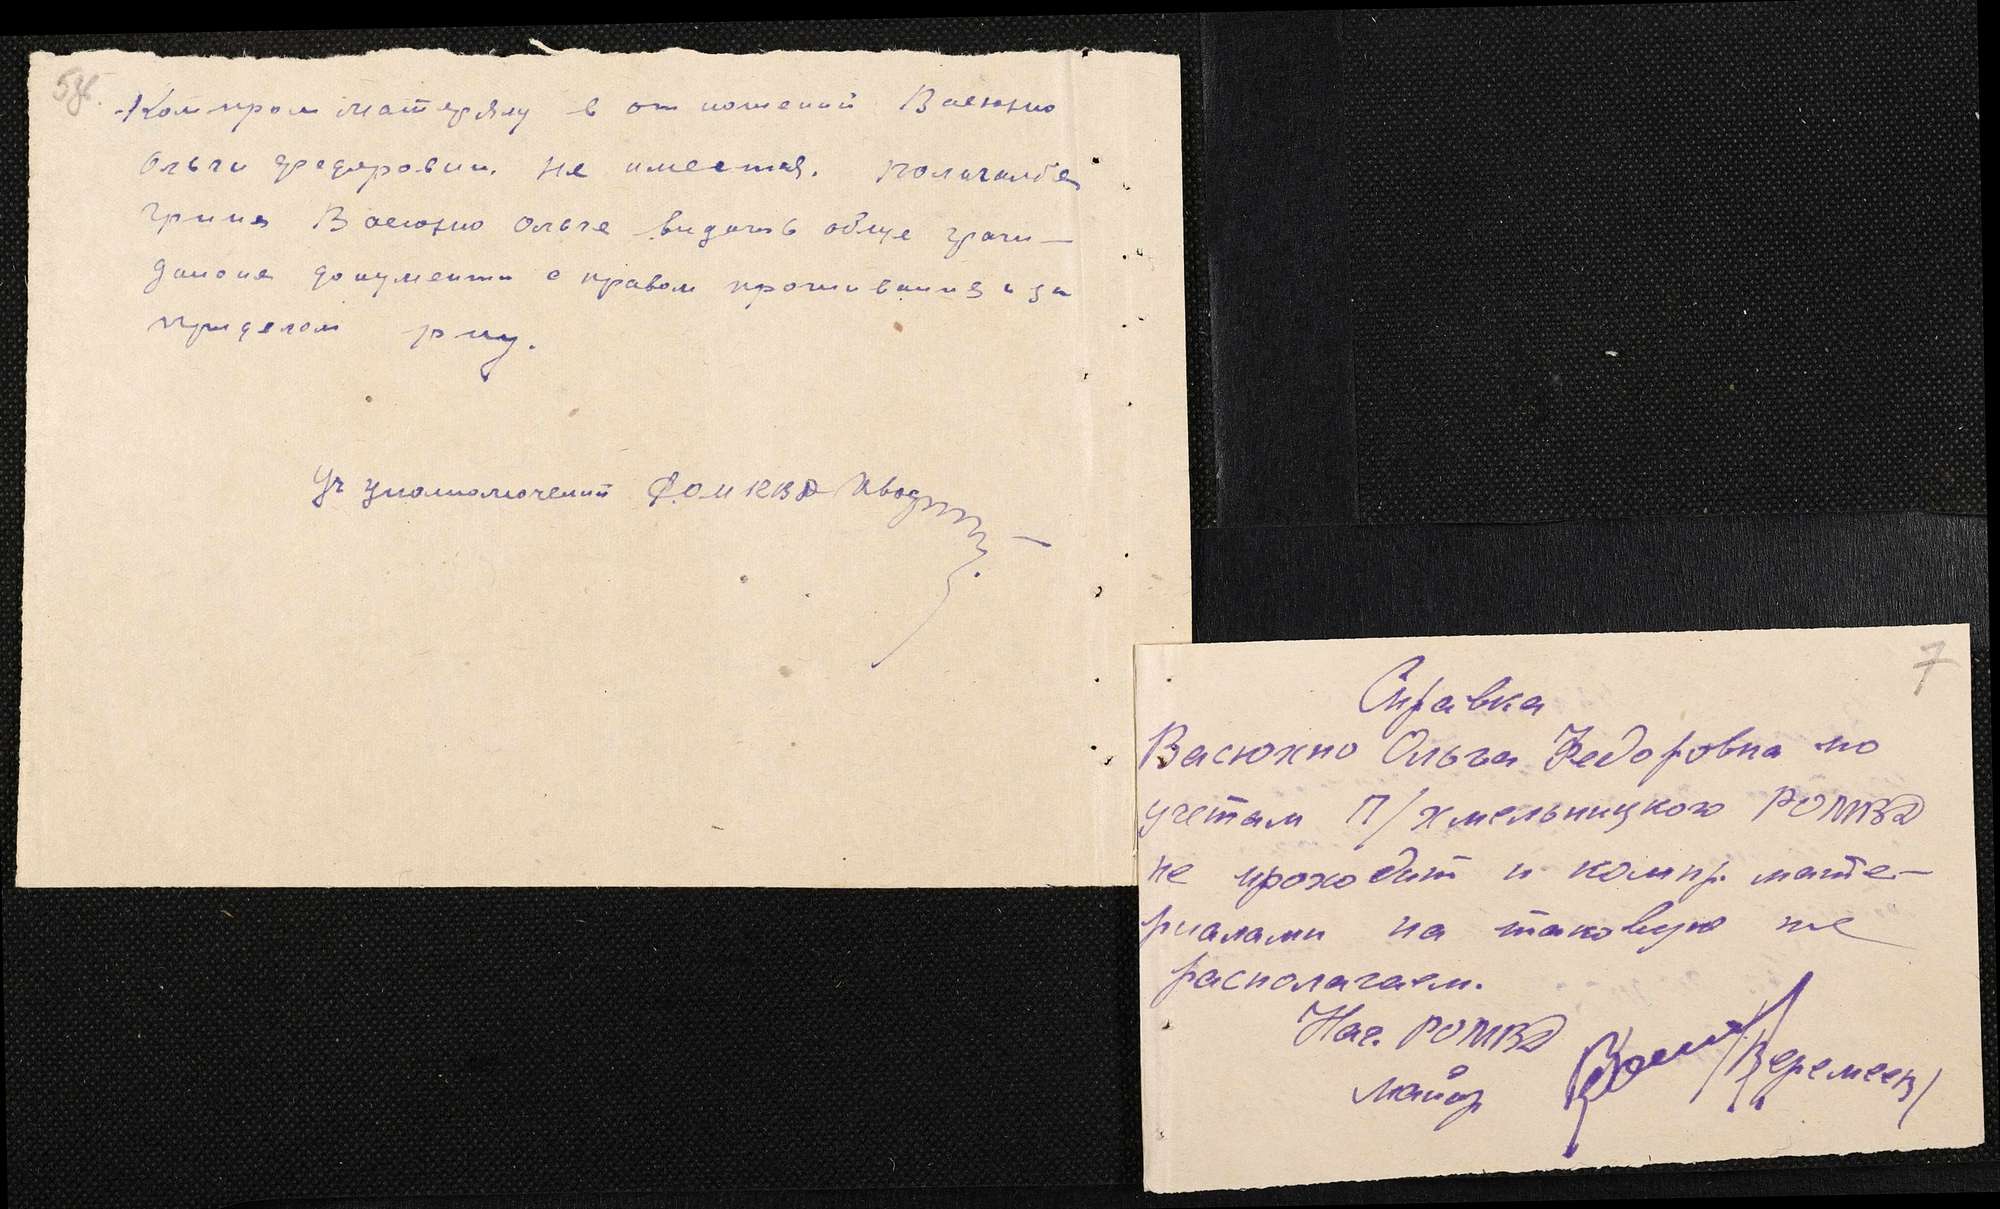 Компром матерялу в отношений Васюхно
Ольги Федоровни. не имеется. Полагалбы
Васюхно Ольге видать обще гражи-
данские документи с правом проживания и за
приделом рну.
Уч уполномочений РОМВД
7
Справка
Васюхно Ольга Федоровна по
учетам П/Хмельницкого РОМВД
не проходит и компр. мате-
риалами на таковую не
располагаем.
Нач. РОМВД
майор /Веремеев/